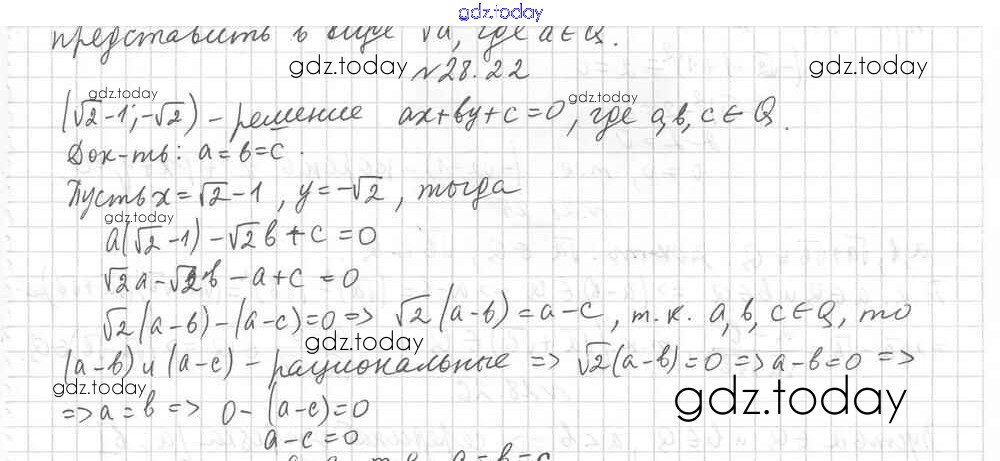 gdz.today
представить в виде √a, где a ∈ Q.
gdz.today
gdz.today
№28.22
gdz.today
gdz.today
(√2-1; -√2) - решение ax+by+c=0, где a,b,c ∈ Q.
Док-ть: a=b=c.
Пусть x=√2-1, y=-√2, тогда
gdz.today
a(√2-1)-√2b+c=0
√2a-√2b-a+c=0
√2(a-b)-(a-c)=0 => √2(a-b)=a-c, т.к. a,b,c ∈ Q, то
gdz.today
(a-b) и (a-c) - рациональные => √2(a-b)=0 => a-b=0 =>
gdz.today
gdz.today
=> a=b => 0-(a-c)=0
a-c=0
a=b=c